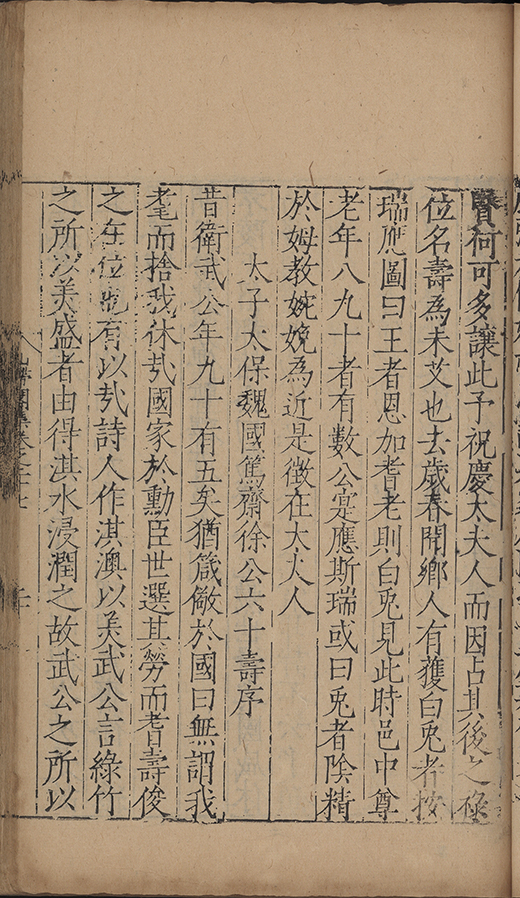 賢何可多讓此予祝慶太夫人而因占其後之祿
位名壽為未艾也去歲春閒鄉人有獲白兎者按
瑞應圖曰王者恩加耆老則白兎見此時邑中尊
老年八九十者有數公寔應斯瑞或曰兎者陰精
於姆教婉娩為近是徵在太夫人
太子太保魏國篤齋徐公六十壽序
昔衛武公年九十有五矣猶箴儆於國曰無謂我
耄而捨我休㢤國家於勳臣世選其勞而耆壽俊
之在位尠有以㢤詩人作淇澳以美武公言綠竹
之所以美盛者由得淇水浸潤之故武公之所以